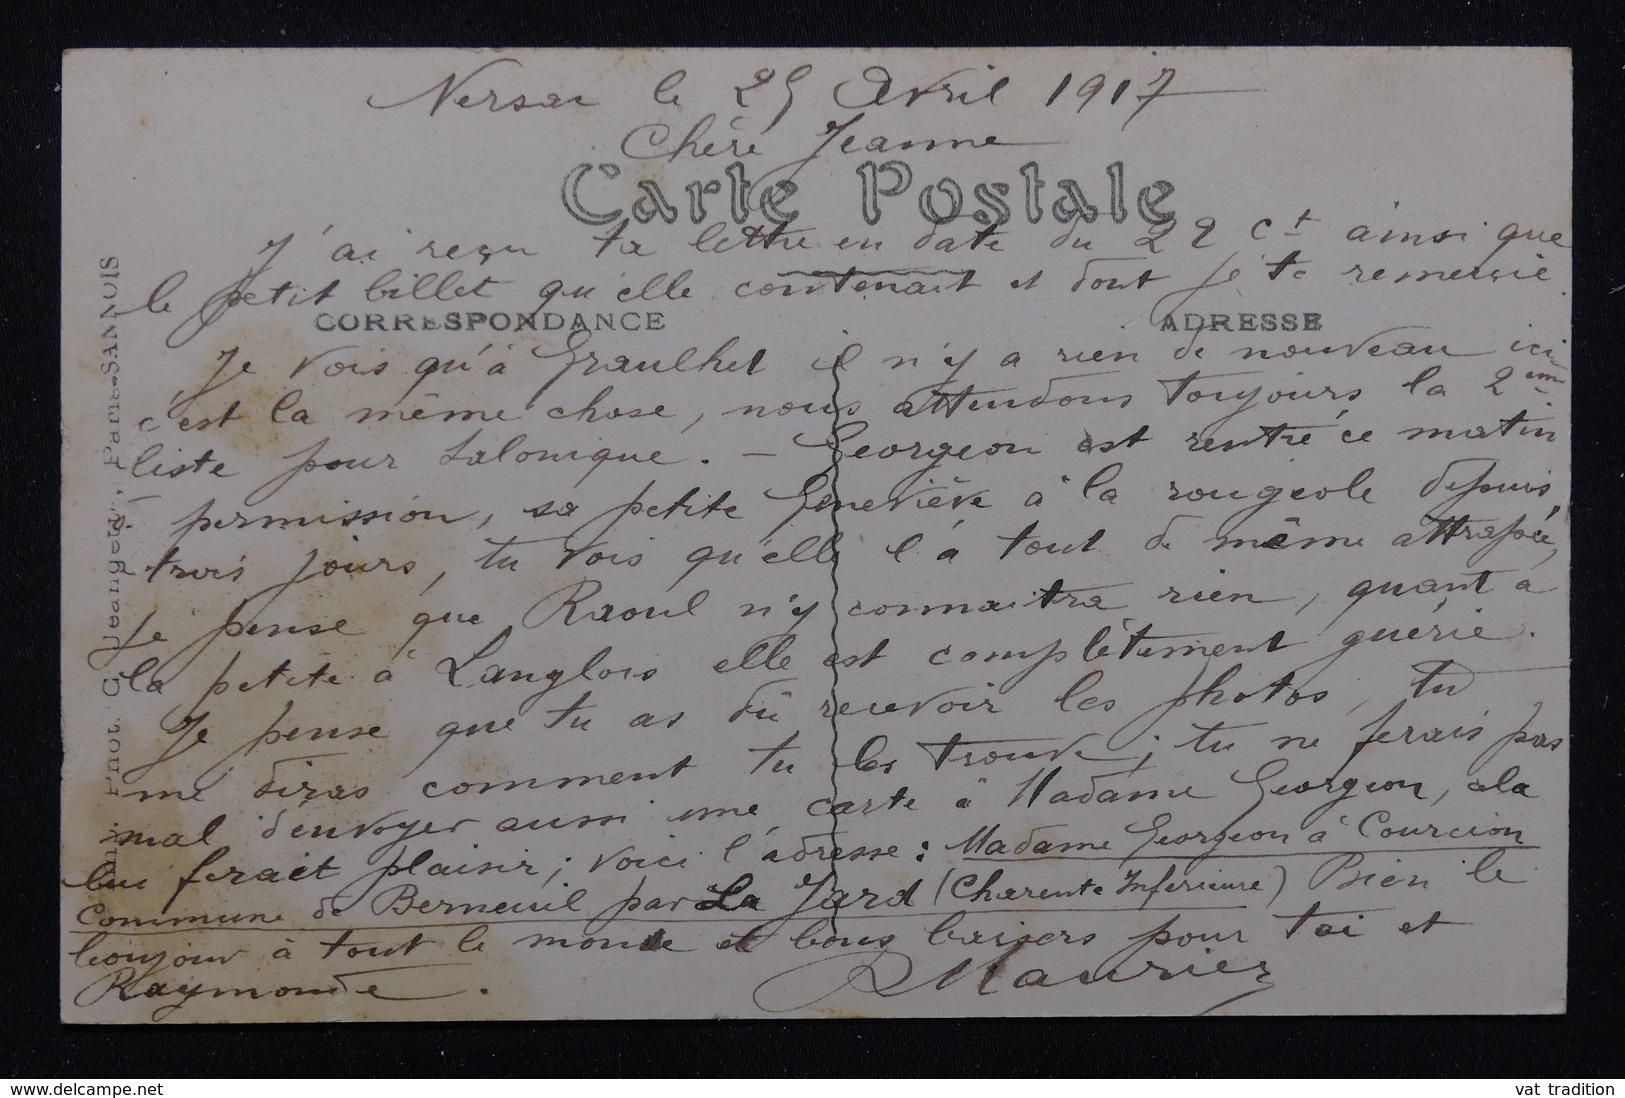 Nersac le 25 Avril 1917
Chère Jeanne
Carte Postale
J'ai reçu ta lettre en date du 22 ct ainsi que
le petit billet qu'elle contenait et dont je te remercie.
CORRESPONDANCE
ADRESSE
Je vois qu'à Graulhet il n'y a rien de nouveau ici
c'est la même chose, nous attendons toujours la 2ème
liste pour Salonique. – Georgeon est rentré ce matin
permission, sa petite Geneviève à la rougeole depuis
trois jours, tu vois qu'elle l'a tout de même attrapée,
je pense que Raoul n'y connaitra rien, quant à
la petite à Langlois elle est complètement guérie.
Je pense que tu as dû recevoir les photos, tu
me diras comment tu les trouve; tu ne ferais pas
mal d'envoyer aussi une carte à Madame Georgeon, cela
lui ferait plaisir; voici l'adresse: Madame Georgeon à Courcion
Commune de Berneuil par La Jard (Charente Inférieure) Bien le
bonjour à tout le monde et bons baisers pour toi et
Raymonde.
Maurier
Phot. G. Jeangette, Paris-SANNOIS
www.delcampe.net
vat tradition